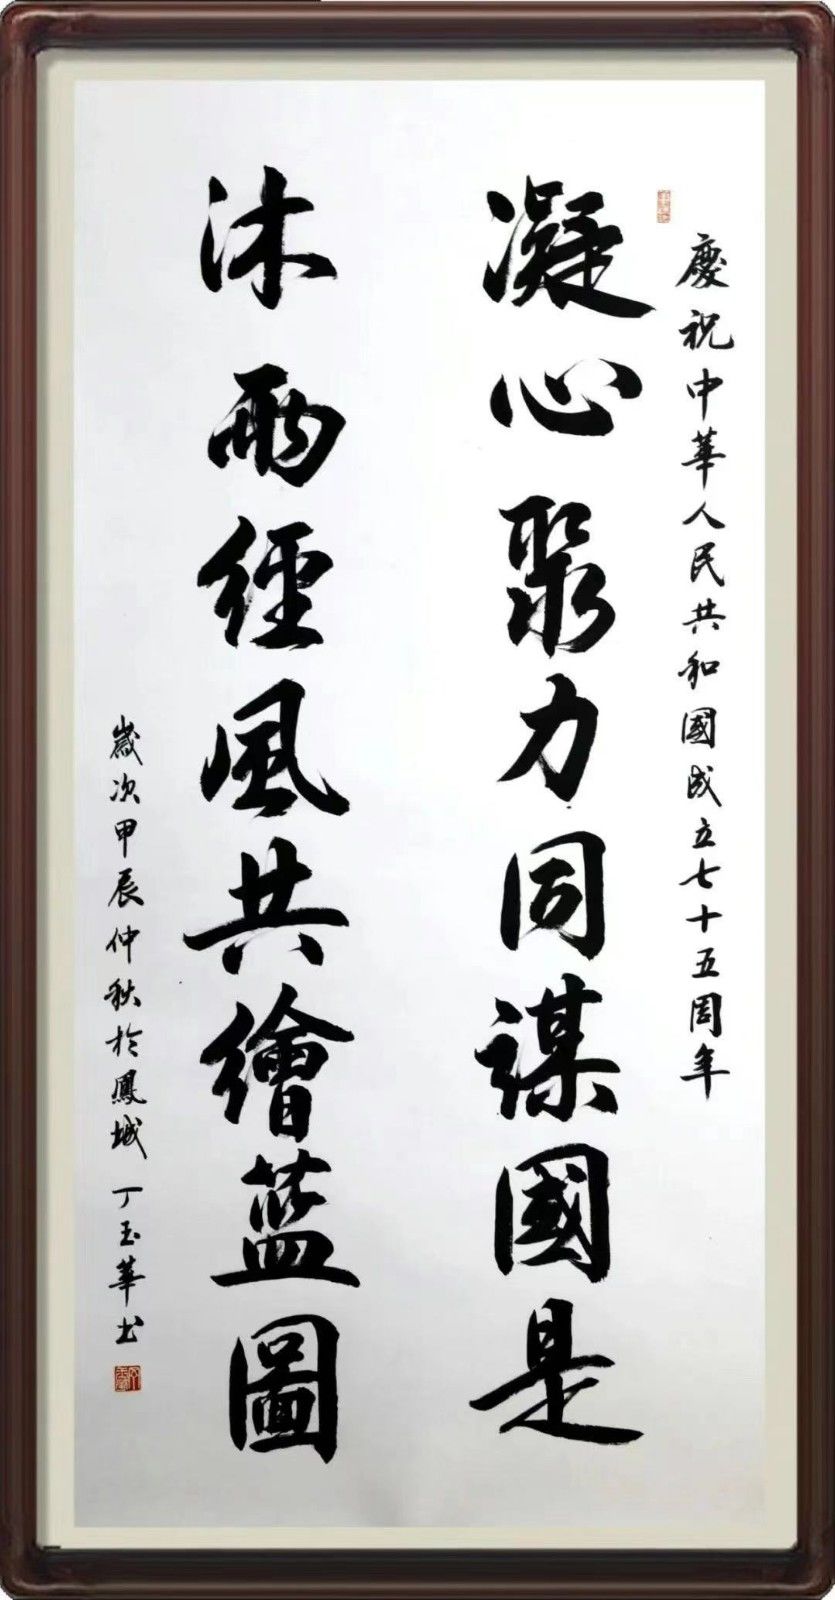 慶祝中華人民共和國成立七十五周年
凝心聚力同謀國是
沐雨經風共繪藍圖
歲次甲辰仲秋於鳳城 丁玉華书